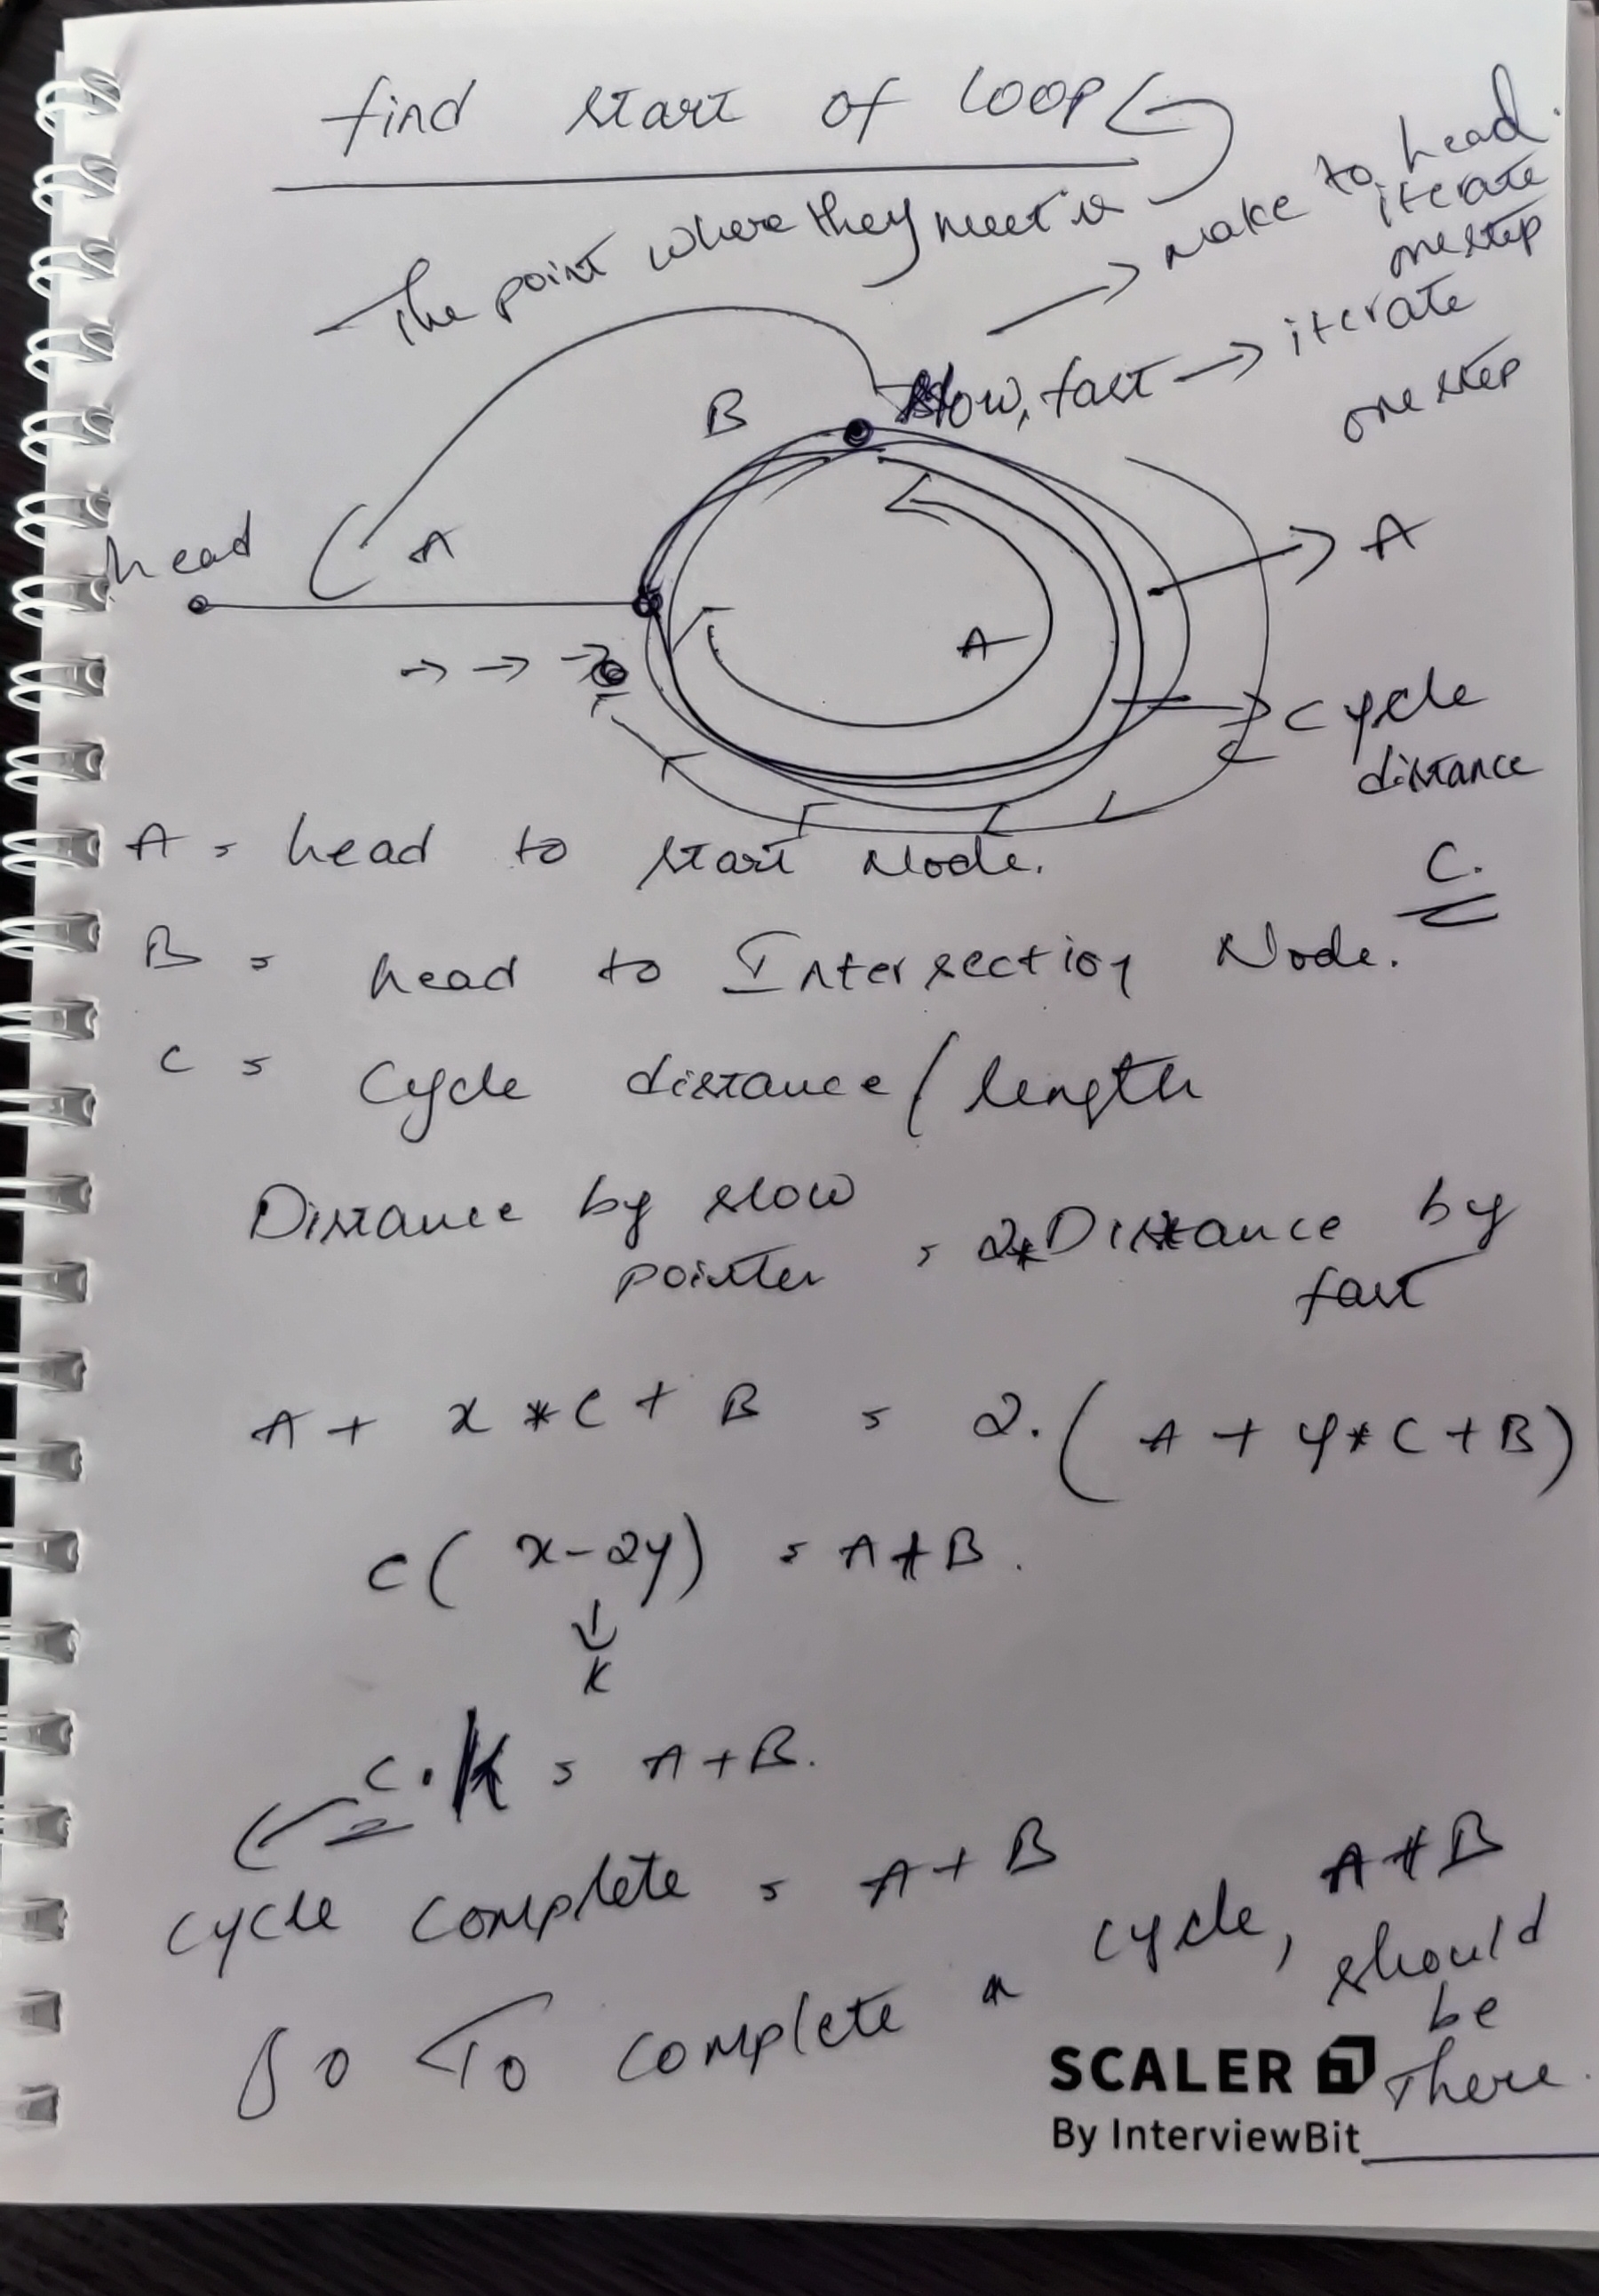 find start of loop
The point where they meet is
make to head.
iterate
one step
slow, fast → iterate
one step
B
head
A
→ A
A
→ → →
→ cycle
distance
A = head to start Node.
C.
B = head to Intersection Node.
C = Cycle distance / length
Distance by slow
pointer = 2*Distance by
fast
A + x * C + B = 2.(A + y * C + B)
C( x-2y) = A+B.
↓
K
C.K = A+B.
cycle complete = A + B
So To complete a cycle, A+B
should
be
There.
SCALER
By InterviewBit